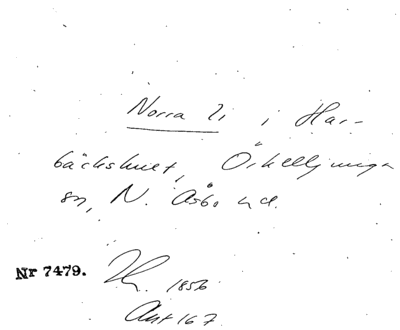 Norra li i Har-
bäckshult, Örkelljunga
sn, N. Åsbo hd.
Nr 7479. 1856
Akt 167